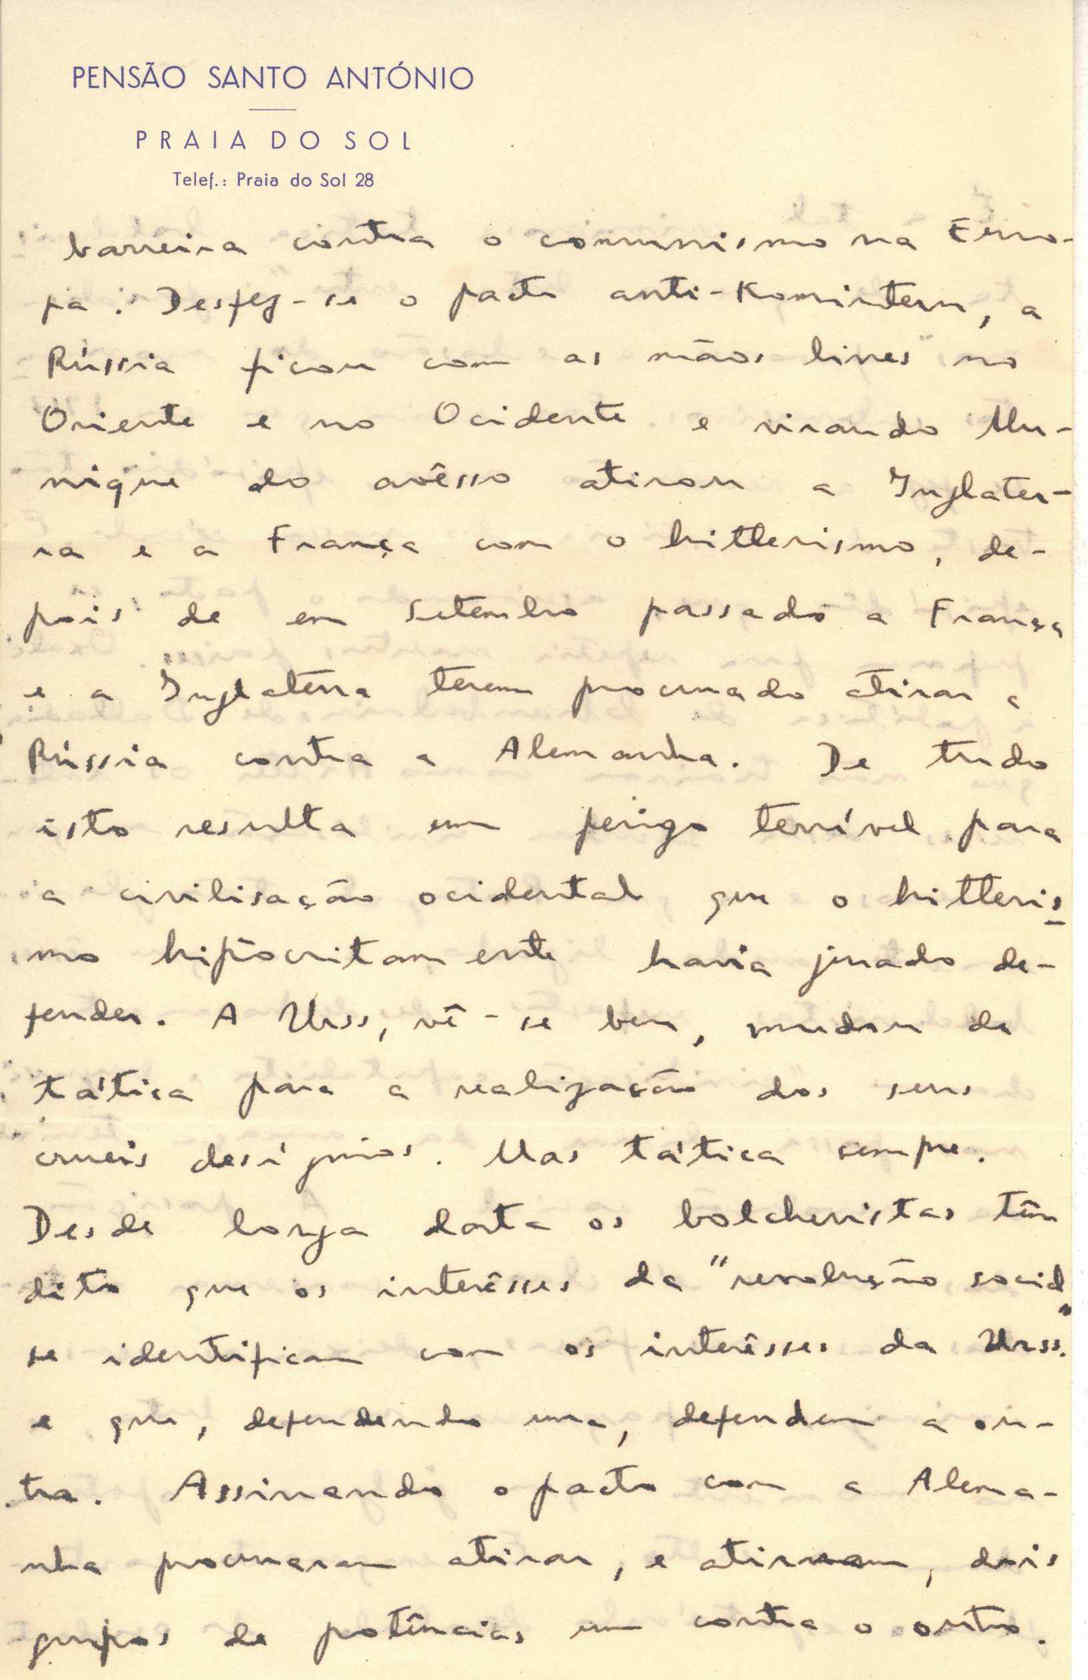 PENSÃO SANTO ANTÓNIO
PRAIA DO SOL
Telef.: Praia do Sol 28
barreira contra o comunismo na Euro-
pa. Desfez-se o pacto anti-Komintern, a
Rússia ficou com as mãos livres no
Oriente e no Ocidente e virando Mu-
nique do avêsso atirou a Inglater-
ra e a França com o hitlerismo, de-
pois de em Setembro passado a França
e a Inglaterra terem procurado atirar a
Rússia contra a Alemanha. De tudo
isto resulta um perigo terrível para
a civilisação ocidental que o hitleris
mo hipòcritamente havia jurado de-
fender. A Urss, vê-se bem, mudou de
tática para a realização dos seus
crueis desígnios. Mas tática sempre.
Desde longa data os bolchevistas têm
dito que os interêsses da "revolução social"
se identificam com os interêsses da Urss.
e que, defendendo uma, defendem a ou-
tra. Assinando o pacto com a Alema-
nha procuraram atirar, e atiraram, dois
grupos de potências um contra o outro.